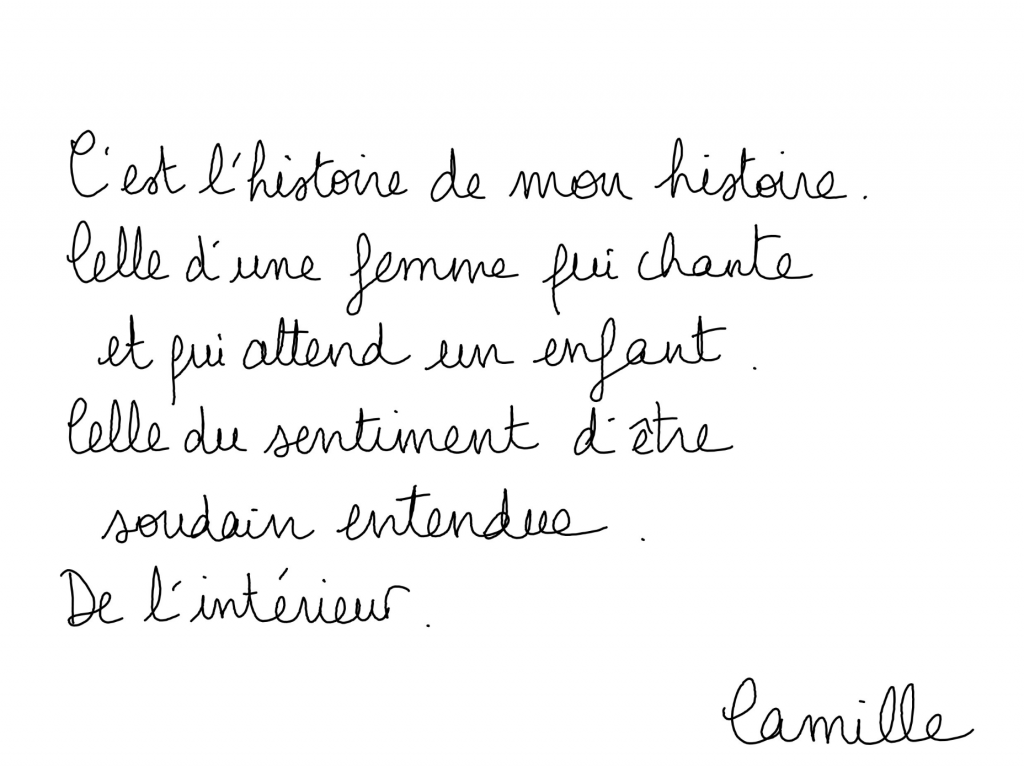 C'est l'histoire de mon histoire.
Celle d'une femme qui chante
et qui attend un enfant.
Celle du sentiment d'être
soudain entendue.
De l'intérieur.
Camille